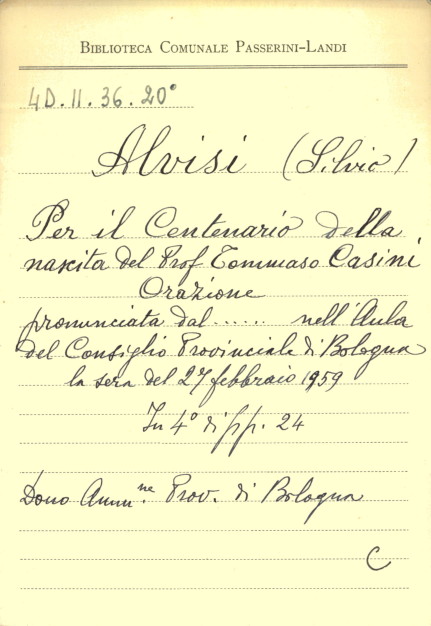 BIBLIOTECA COMUNALE PASSERINI-LANDI
4D. II. 36. 20°
Alvisi (Silvio)
Per il Centenario della
nascita del Prof Tommaso Casini
Orazione
pronunciata dal...... nell'Aula
del Consiglio Provinciale di Bologna
la sera del 27 febbraio 1959
In 4° di pp. 24
Dono Amm.ne Prov. di Bologna
C